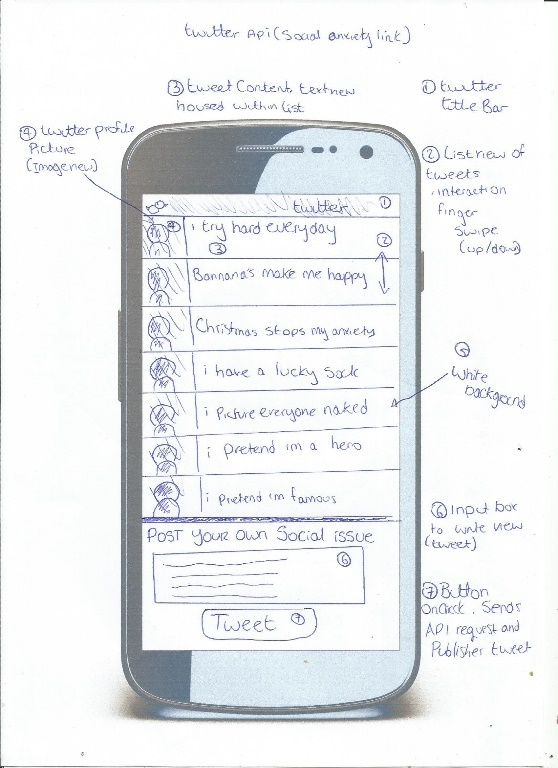 twitter Api (Social anxiety link)
③ tweet Content textview
housed within list
① twitter
title Bar
④ twitter profile
Picture
(Imageview)
② Listview of
tweets
interaction
finger
Swipe
(up/down)
twitter ①
④ i try hard everyday
③ ②
Bannana's make me happy
Christmas stops my anxiety
i have a lucky Sock
i Picture everyone naked
i Pretend im a hero
i Pretend im famous
⑤
White
background
POST YOUR OWN Social issue
⑥
Tweet ⑦
⑥ Input box
to write new
(tweet)
⑦ Button
OnClick. Sends
API request and
Publisher tweet